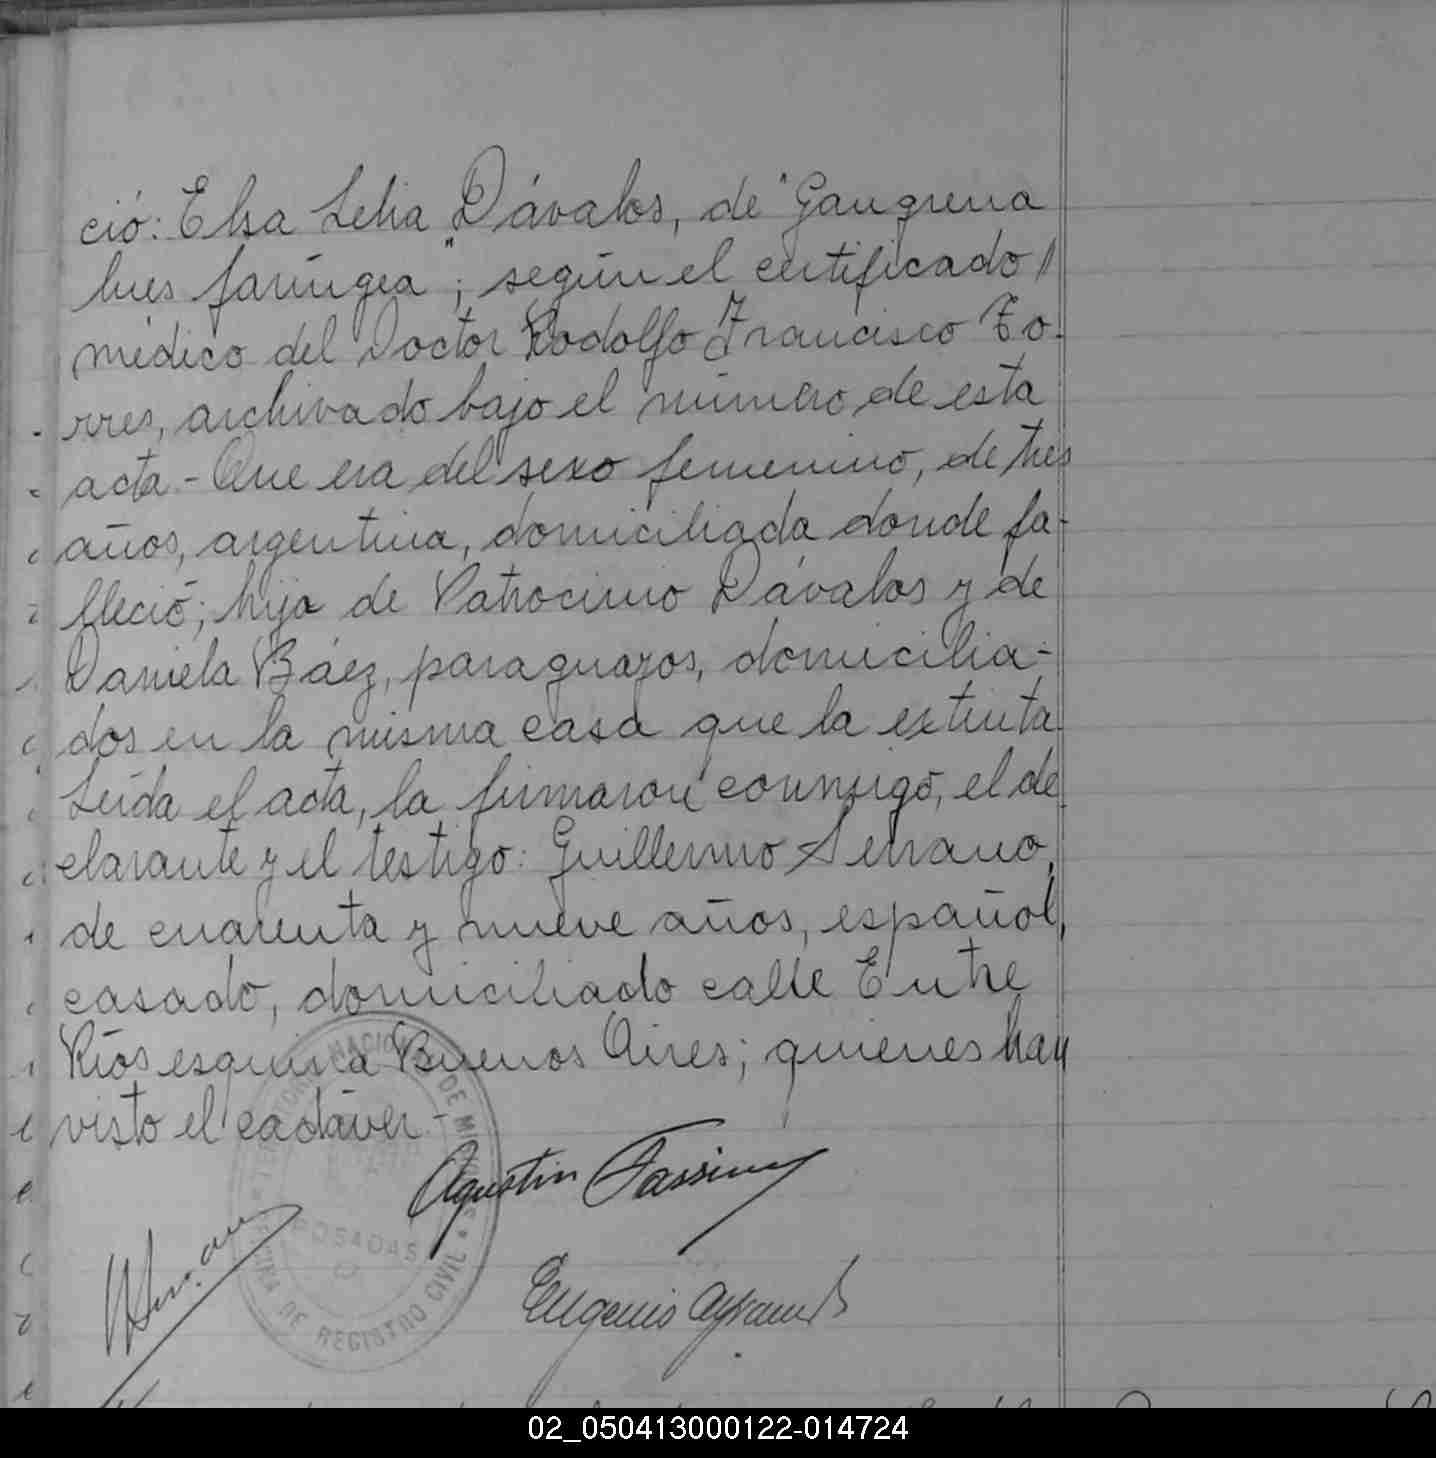 ció: Elsa Lelia Dávalos, de "Gangrena
lues faríngea"; según el certificado
médico del Doctor Rodolfo Francisco To-
rres, archivado bajo el número de esta
acta - Que era del sexo femenino, de tres
años, argentina, domiciliada donde fa-
lleció; hija de Patrocinio Dávalos y de
Daniela Báez, paraguayos, domicilia-
dos en la misma casa que la extinta
Leída el acta, la firmaron conmigo, el de
clarante y el testigo: Guillermo Serrano,
de cuarenta y nueve años, español,
casado, domiciliado calle Entre
Ríos esquina Buenos Aires; quienes han
visto el cadáver -
Agustin
Eugenio
NACIONAL DE MISIONES
POSADAS
OFICINA DE REGISTRO CIVIL
02_050413000122-014724